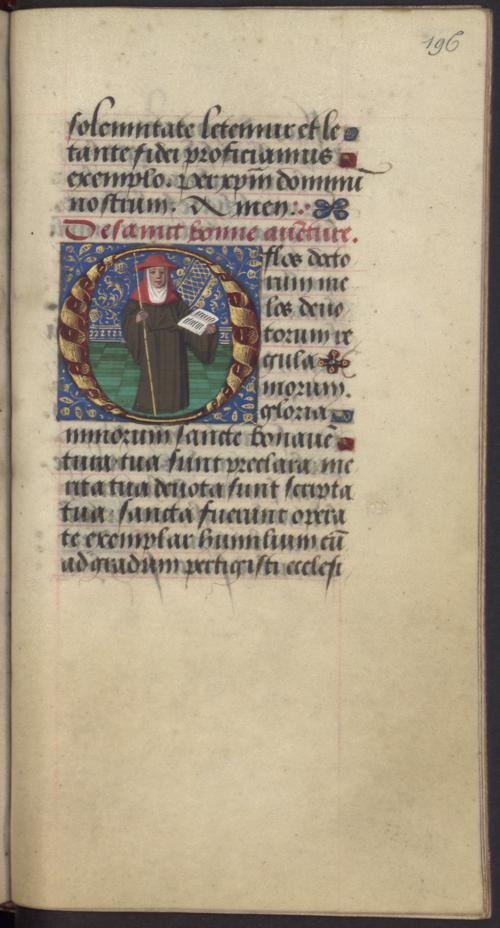 196
solemnitate letemur et le
tante fidei proficiamus
exemplo. Per xpm dominu
nostrum. Amen.
De sainct bonne aucture.
O flos docto
rum me
los devo
torum re
gula
morum.
gloria
minorum sancte bonaue
tura tua sunt preclara me
rita tua devota sunt scripta
tua sancta fuerunt opera
te exemplar humilium cu
ad gradum pertigisti ecclesi